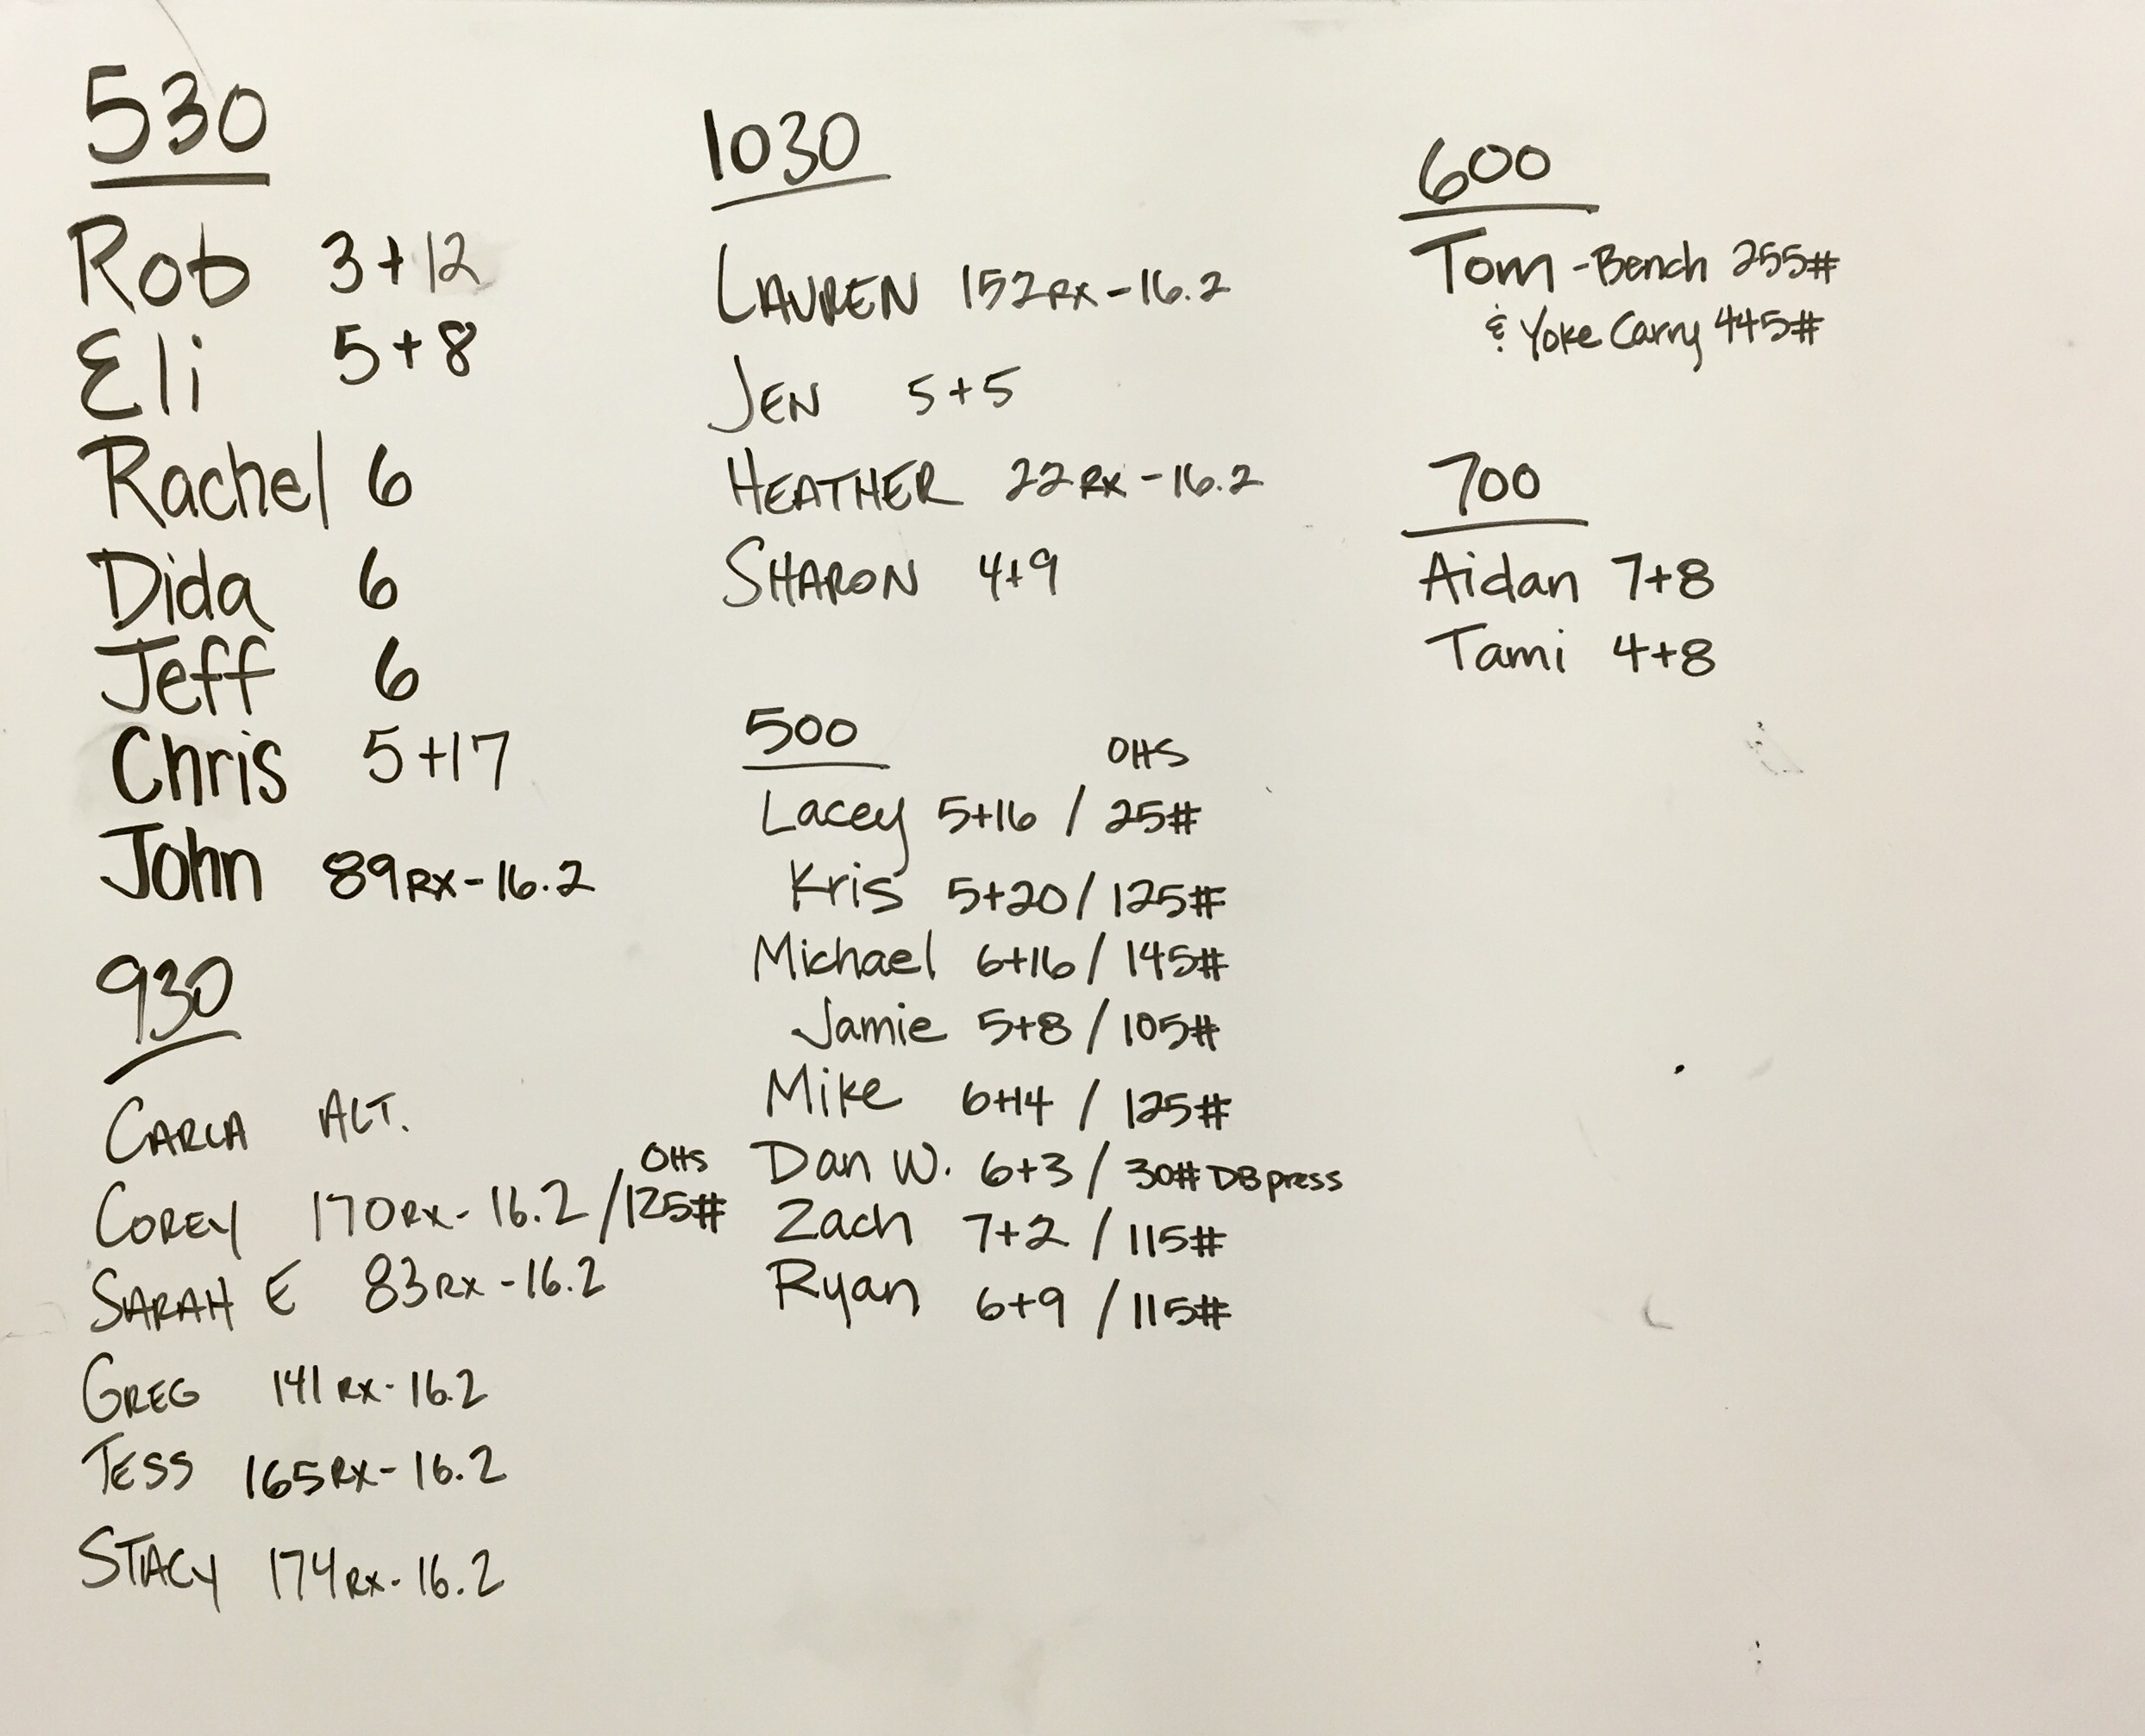 530
Rob 3+12
Eli 5+8
Rachel 6
Dida 6
Jeff 6
Chris 5+17
John 89RX-16.2
930
CARLA ALT.
OHS
COREY 170RX-16.2/125#
SARAH E 83RX-16.2
GREG 141RX-16.2
TESS 165RX-16.2
STACY 174RX-16.2
1030
LAUREN 152RX-16.2
JEN 5+5
HEATHER 22RX-16.2
SHARON 4+9
500 OHS
Lacey 5+16 / 25#
Kris 5+20 / 125#
Michael 6+16 / 145#
Jamie 5+8 / 105#
Mike 6+14 / 125#
Dan W. 6+3 / 30# DB press
Zach 7+2 / 115#
Ryan 6+9 / 115#
600
Tom - Bench 255#
& Yoke Carry 445#
700
Aidan 7+8
Tami 4+8